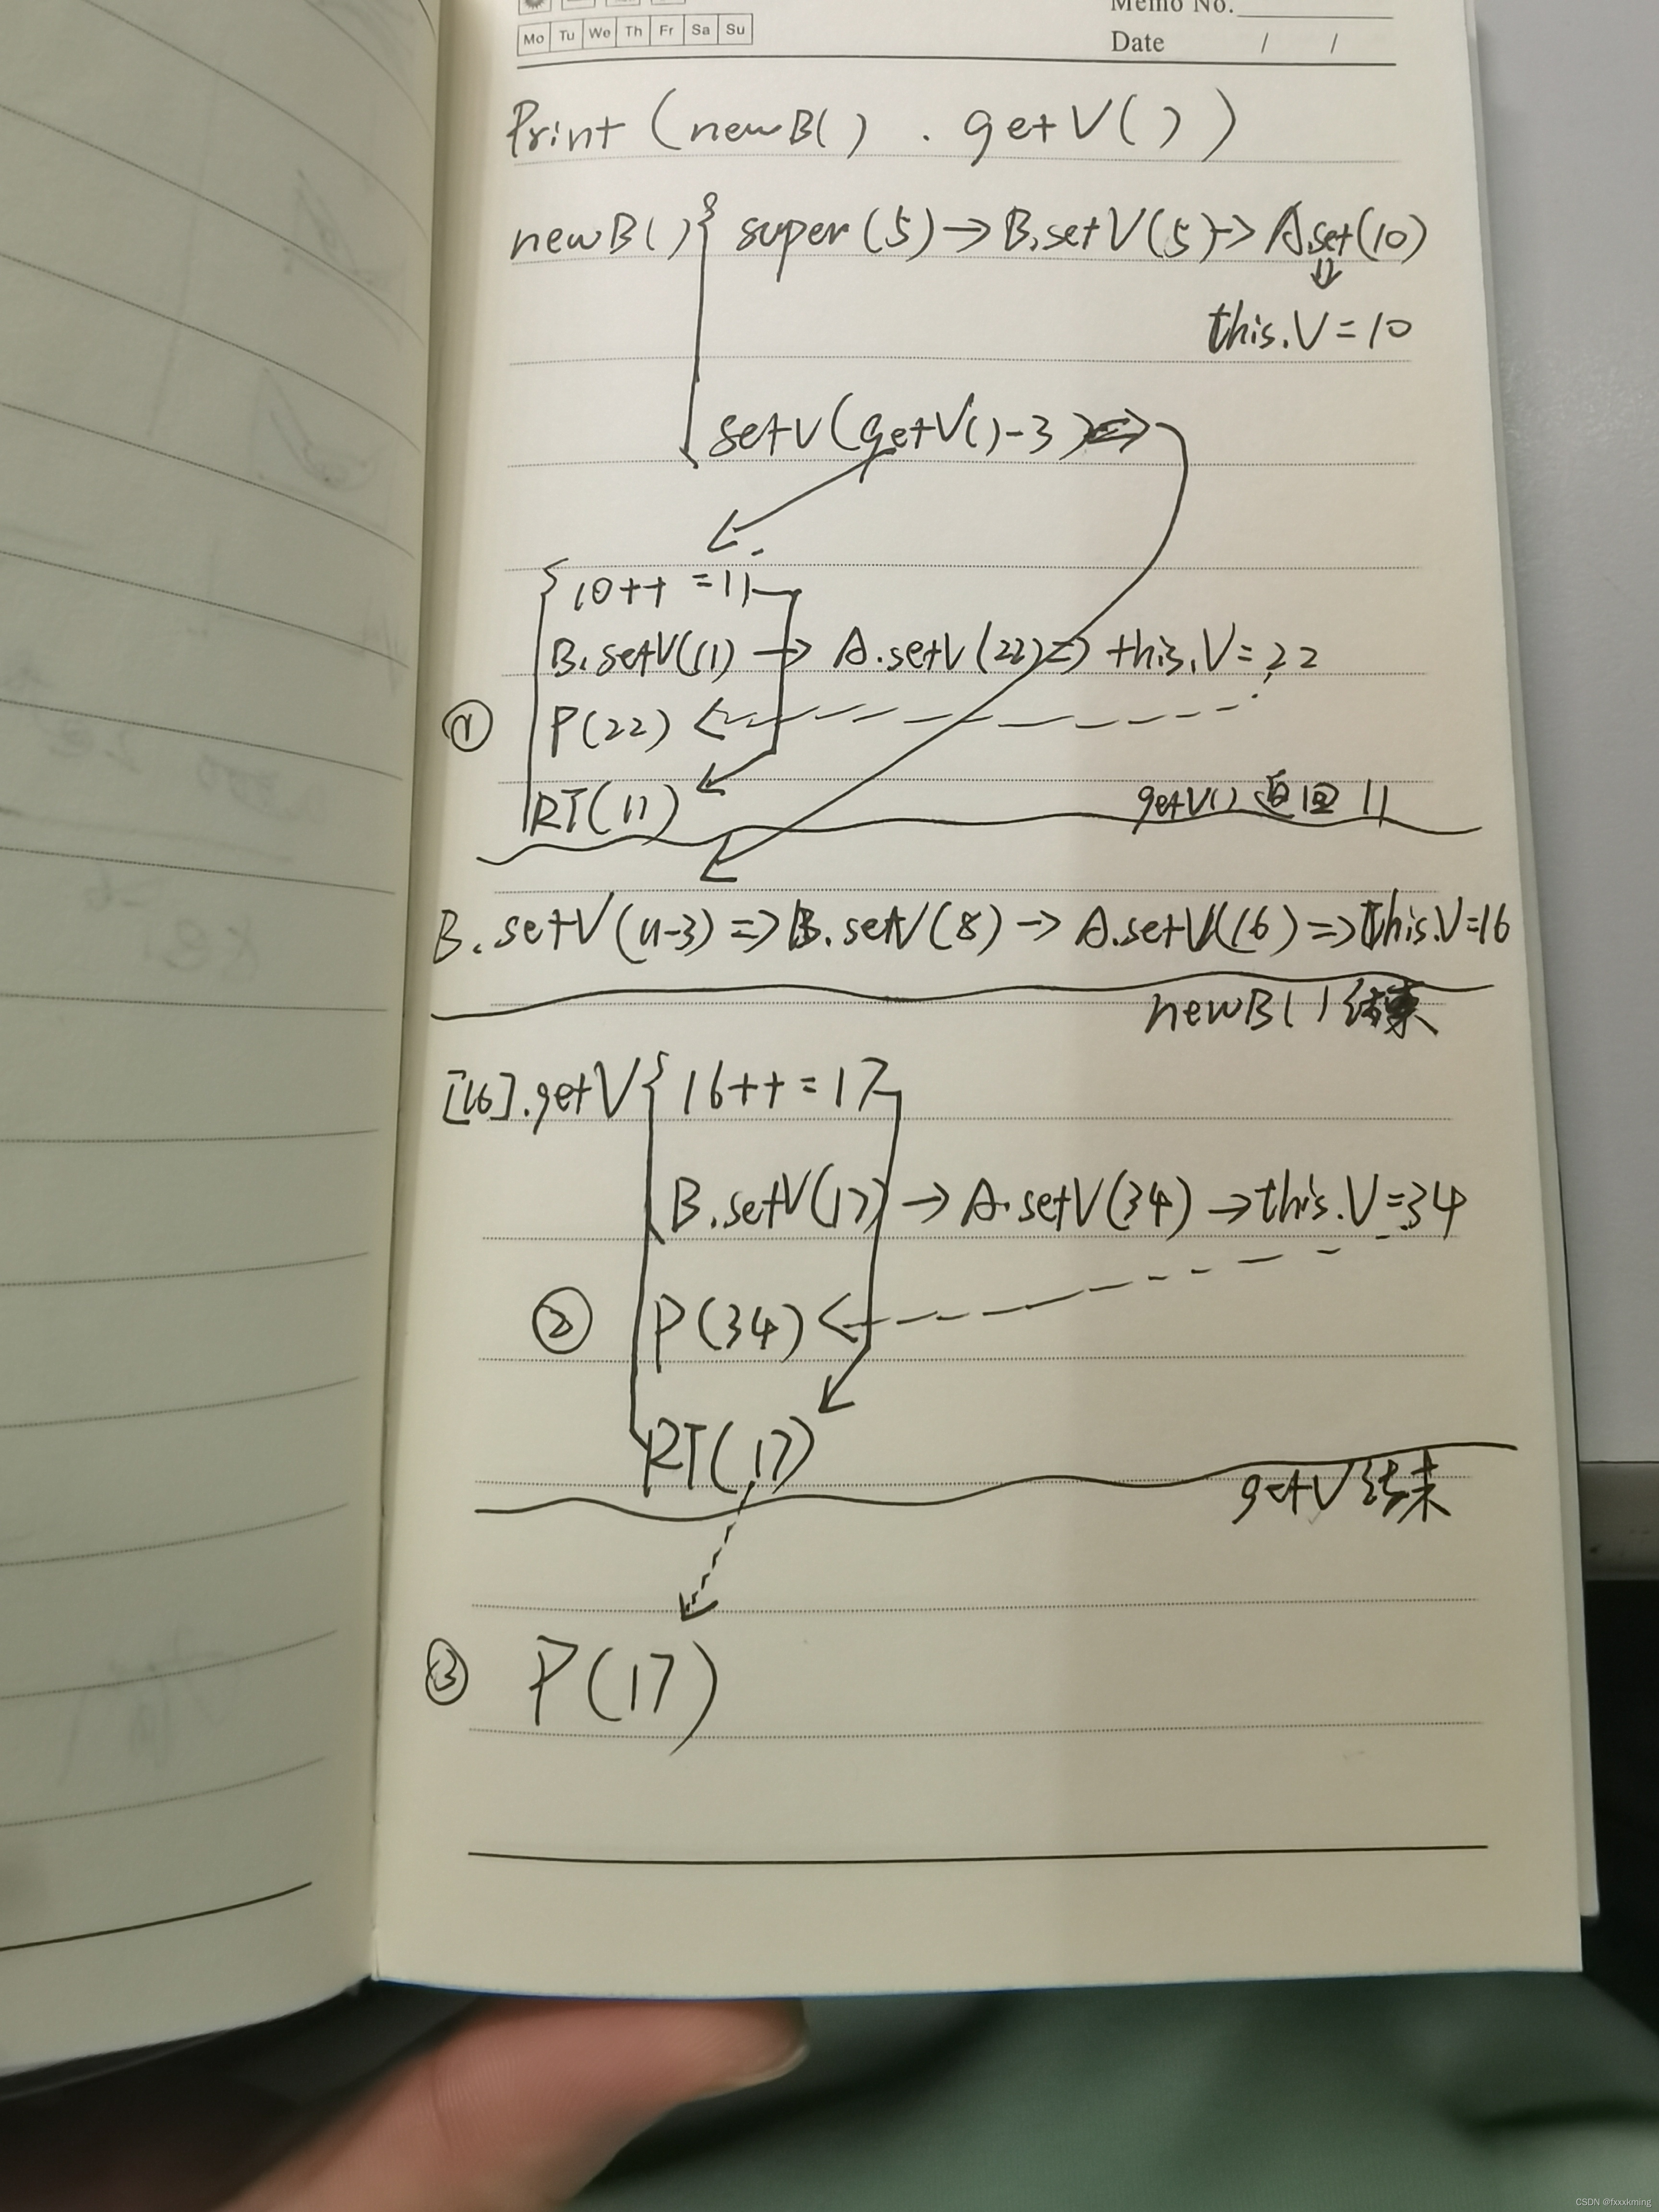 Memo No.
Mo Tu We Th Fr Sa Su
Date / /
Print (new B( ) . getV( ) )
new B( ) { super (5) → B.setV(5) → A.set(10)
⇓
this.V = 10
setV(getV()-3) ⇒
10++ = 11
B.setV(11) → A.setV(22) ⇒ this.V = 22
① P(22)
RT(11)
getV() 返回 11
B.setV(11-3) ⇒ B.setV(8) → A.setV(16) ⇒ this.V=16
new B( ) 结束
[16].getV { 16++ = 17
B.setV(17) → A.setV(34) → this.V=34
② P(34)
RT(17)
getV 结束
③ P(17)
CSDN @fxxxkming